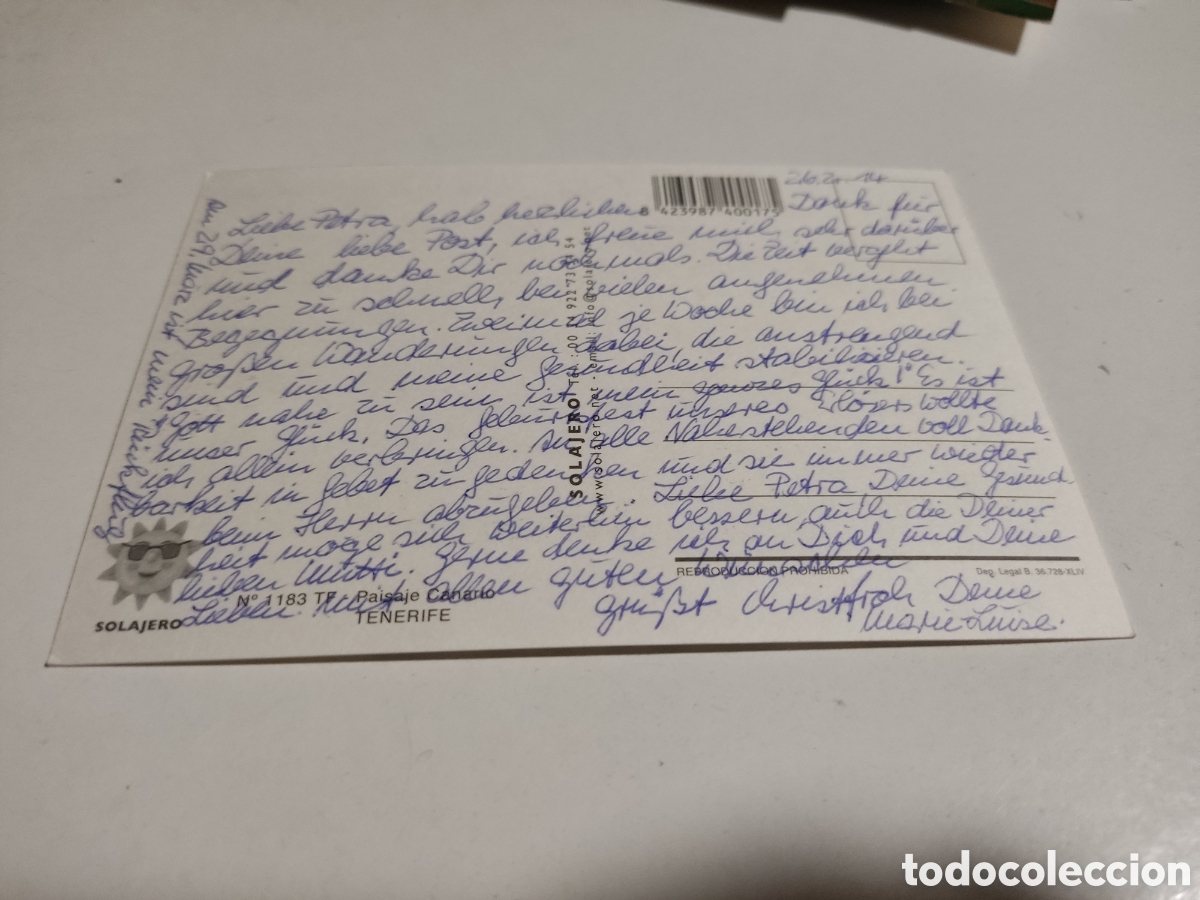 Am 29. März ist mein Rückflug
26.2.14
Liebe Petra, hab herzlichen Dank für
Deine liebe Post, ich freue mich sehr darüber
und danke Dir nochmals. Die Zeit vergeht
hier zu schnell, bei vielen angenehmen
Begegnungen. Zweimal je Woche bin ich bei
großen Wanderungen dabei, die anstrengend
sind und meine Gesundheit stabilisieren.
Gott nahe zu sein ist mein ganzes Glück!" Es ist
unser Glück. Das Geburtsfest unseres Erlösers wollte
ich allein verbringen. An alle Nahestehenden voll Dank-
barkeit im Gebet zu gedenken und sie immer wieder
beim Herrn abzugeben. Liebe Petra, Deine Gesund-
heit möge sich weiterhin bessern, auch die Deiner
lieben Mutti. Gerne denke ich an Dich und Deine
Lieben. Mit allen guten Wünschen
grüßt Deine
Marie-Luise.
8 423987 400175
SOLAJERO Tel.: 00
www.solajero.net
Nº 1183 TF Paisaje Canario
TENERIFE
SOLAJERO
REPRODUCCION PROHIBIDA
Dep. Legal B. 36.728-XLIV
todocoleccion